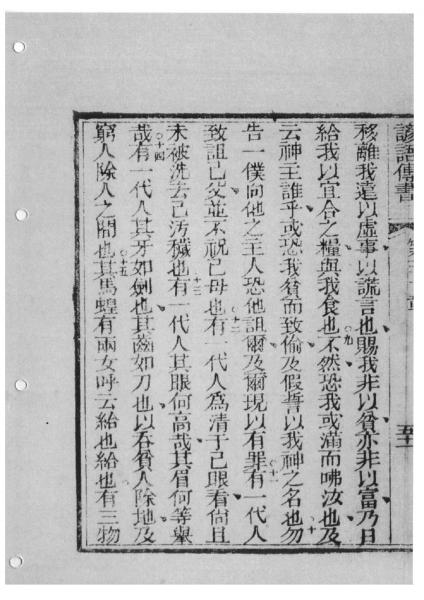 諺語傳書 五十
移離我遠以虛事以謊言也賜我非以貧亦非以富乃日
給我以宜合之糧與我食也〇九不然恐我或滿而咈汝也及
云神主誰乎或恐我貧而致偷及假誓以我神之名也〇十勿
告一僕向他之主人恐他詛爾及爾現以有罪〇十一有一代人
致詛己父並不祝己母也〇十二有一代人為清于己眼看尙且
未被洗去己污穢也〇十三有一代人其眼何高哉其眉何等舉
哉〇十四有一代人其牙如劍也其齒如刀也以吞貧人除地及
窮人除人之間也〇十五其馬蝗有兩女呼云給也給也有三物